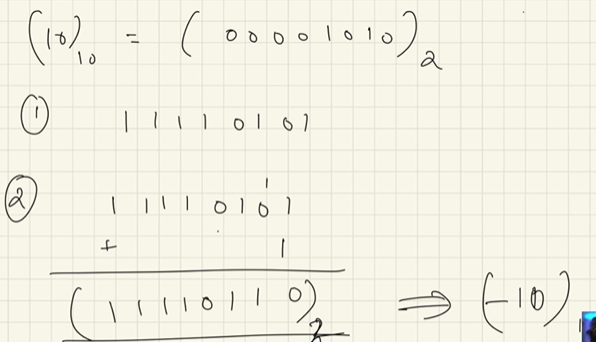 (10)10 = (00001010)2
① 11110101
② 1
11110101
+ 1
(11110110)2 ⟹ (-10)